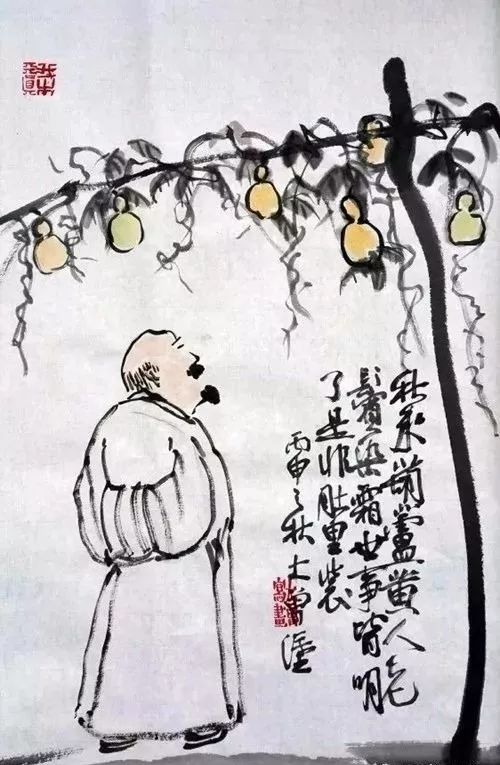 秋来葫蘆黄人老
鬓染霜世事皆明
了是非肚里装
丙申之秋大